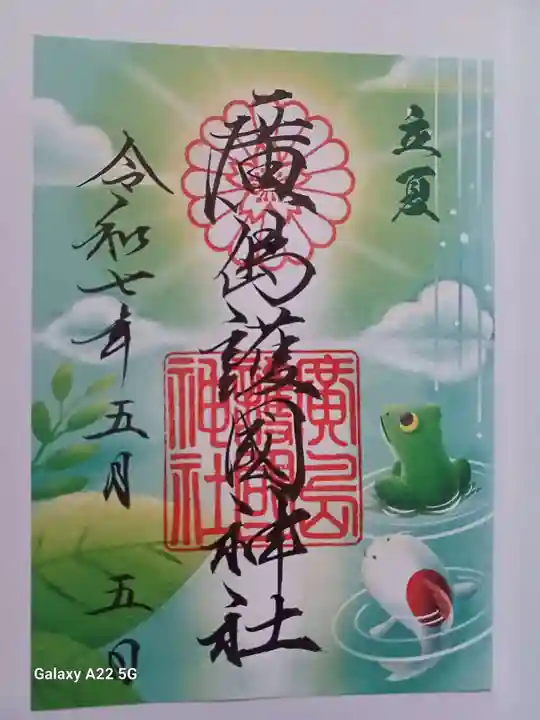 立夏
廣島護國神社
廣島
護國
神社
令和七年五月五日
Galaxy A22 5G